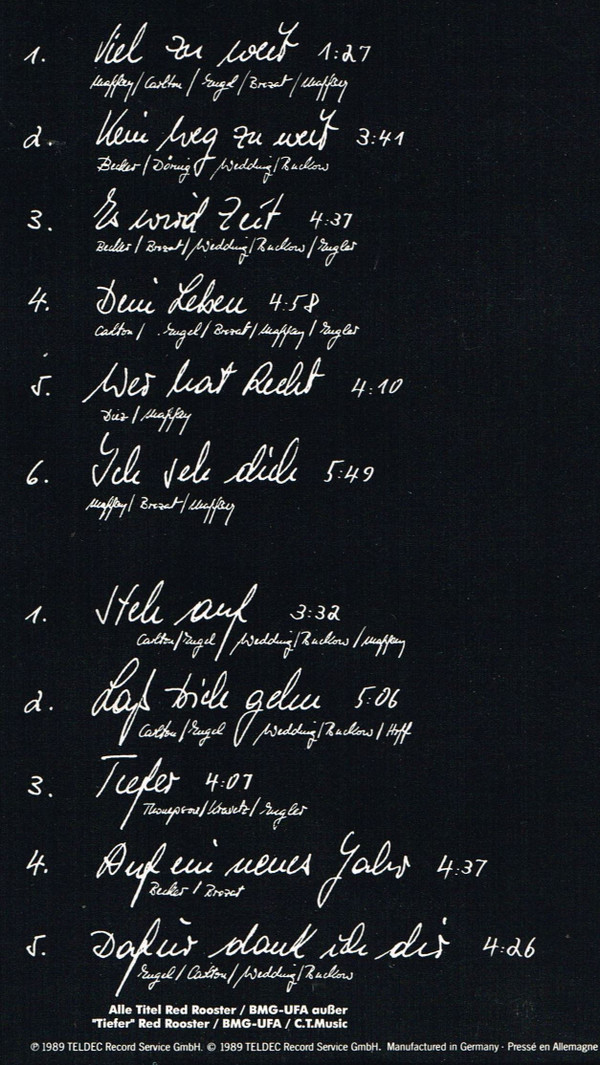 1. Viel zu weit 1:27
Maffay / Carlton / Engel / Brezat / Maffay
2. Kein Weg zu weit 3:41
Becker / Döring / Wedding / Buckow
3. Es wird Zeit 4:37
Becker / Brezat / Wedding / Buckow / Engler
4. Dein Leben 4:58
Carlton / Engel / Brezat / Maffay / Engler
5. Wer hat Recht 4:10
Diez / Maffay
6. Ich seh dich 5:49
Maffay / Brezat / Maffay
1. Steh auf 3:32
Carlton / Engel / Wedding / Buckow / Maffay
2. Laß dich gehn 5:06
Carlton / Engel / Wedding / Buckow / Hoff
3. Tiefer 4:07
Thompson / Kravetz / Engler
4. Auf ein neues Jahr 4:37
Becker / Brezat
5. Dafür dank ich dir 4:26
Engel / Carlton / Wedding / Buckow
Alle Titel Red Rooster / BMG-UFA außer
"Tiefer" Red Rooster / BMG-UFA / C.T.Music
℗ 1989 TELDEC Record Service GmbH. © 1989 TELDEC Record Service GmbH. Manufactured in Germany · Pressé en Allemagne